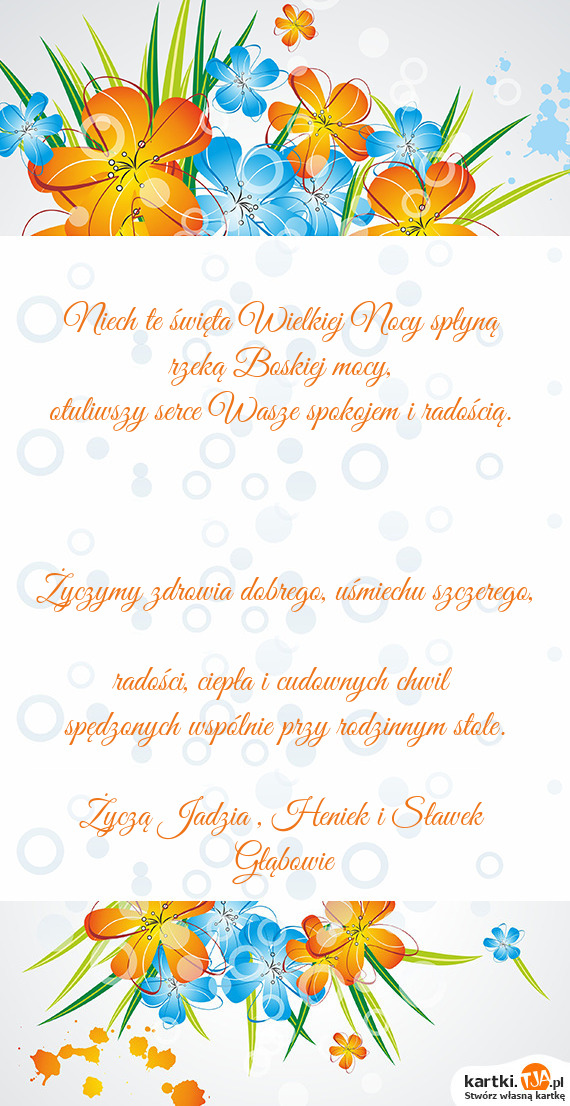 Niech te święta Wielkiej Nocy spłyną
rzeką Boskiej mocy,
otuliwszy serce Wasze spokojem i radością.
Życzymy zdrowia dobrego, uśmiechu szczerego,
radości, ciepła i cudownych chwil
spędzonych wspólnie przy rodzinnym stole.
Życzą Jadzia , Heniek i Sławek
Głąbowie
kartki.TJA.pl
Stwórz własną kartkę